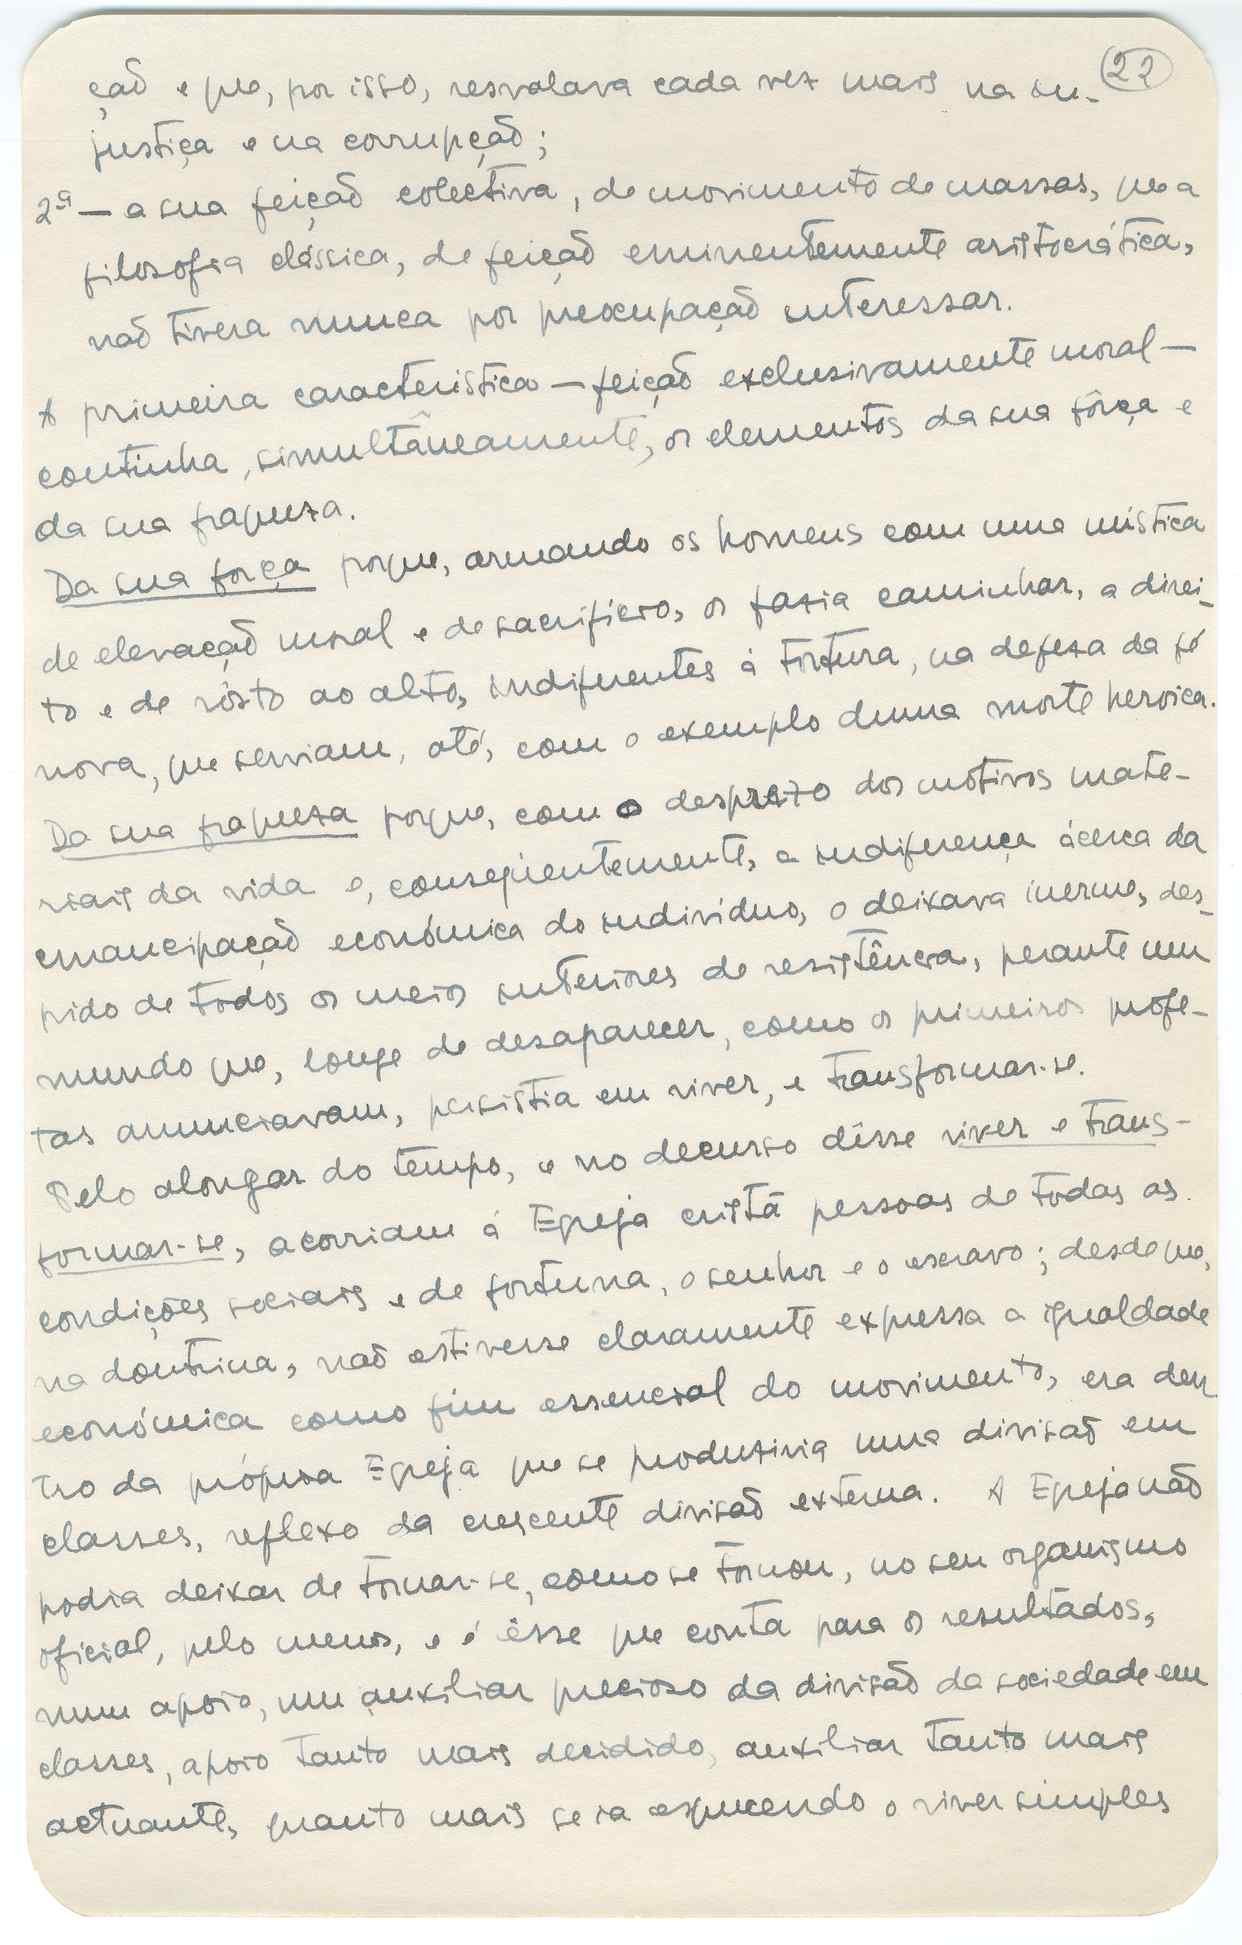 22
ção e que, por isso, resvalava cada vez mais na in-
justiça e na corrupção;
2ª — a sua feição colectiva, de movimento de massas, que a
filosofia clássica, de feição eminentemente aristocrática,
não tivera nunca por preocupação interessar.
A primeira característica — feição exclusivamente moral —
continha, simultâneamente, os elementos da sua fôrça e
da sua fraqueza.
Da sua força porque, armando os homens com uma mística
de elevação moral e de sacrifício, os fazia caminhar, a direi-
to e de rôsto ao alto, indiferentes á tortura, na defeza da fé
nova, que serviam, até, com o exemplo duma morte heroica.
Da sua fraqueza porque, com o desprezo dos motivos mate-
riais da vida e, conseqüentemente, a indiferença ácerca da
emancipação económica do indivíduo, o deixava inerme, des-
pido de todos os meios interiores de resistência, perante um
mundo que, longe de desaparecer, como os primeiros profe-
tas anunciavam, persistia em viver, e transformar-se.
Pelo alongar do tempo, e no decurso dêsse viver e trans-
formar-se, acorriam á Egreja cristã pessoas de todas as
condições sociais e de fortuna, o senhor e o escravo; desde que,
na doutrina, não estivesse claramente expressa a igualdade
económica como fim essencial do movimento, era den
tro da própria Egreja que se produziria uma divisão em
classes, reflexo da crescente divisão externa. A Egreja não
podia deixar de tornar-se, como se tornou, no seu organismo
oficial, pelo menos, e é êsse que conta para os resultados,
num apoio, um auxiliar precioso da divisão da sociedade em
classes, apoio tanto mais decidido, auxiliar tanto mais
actuante, quanto mais se ia esquecendo o viver simples